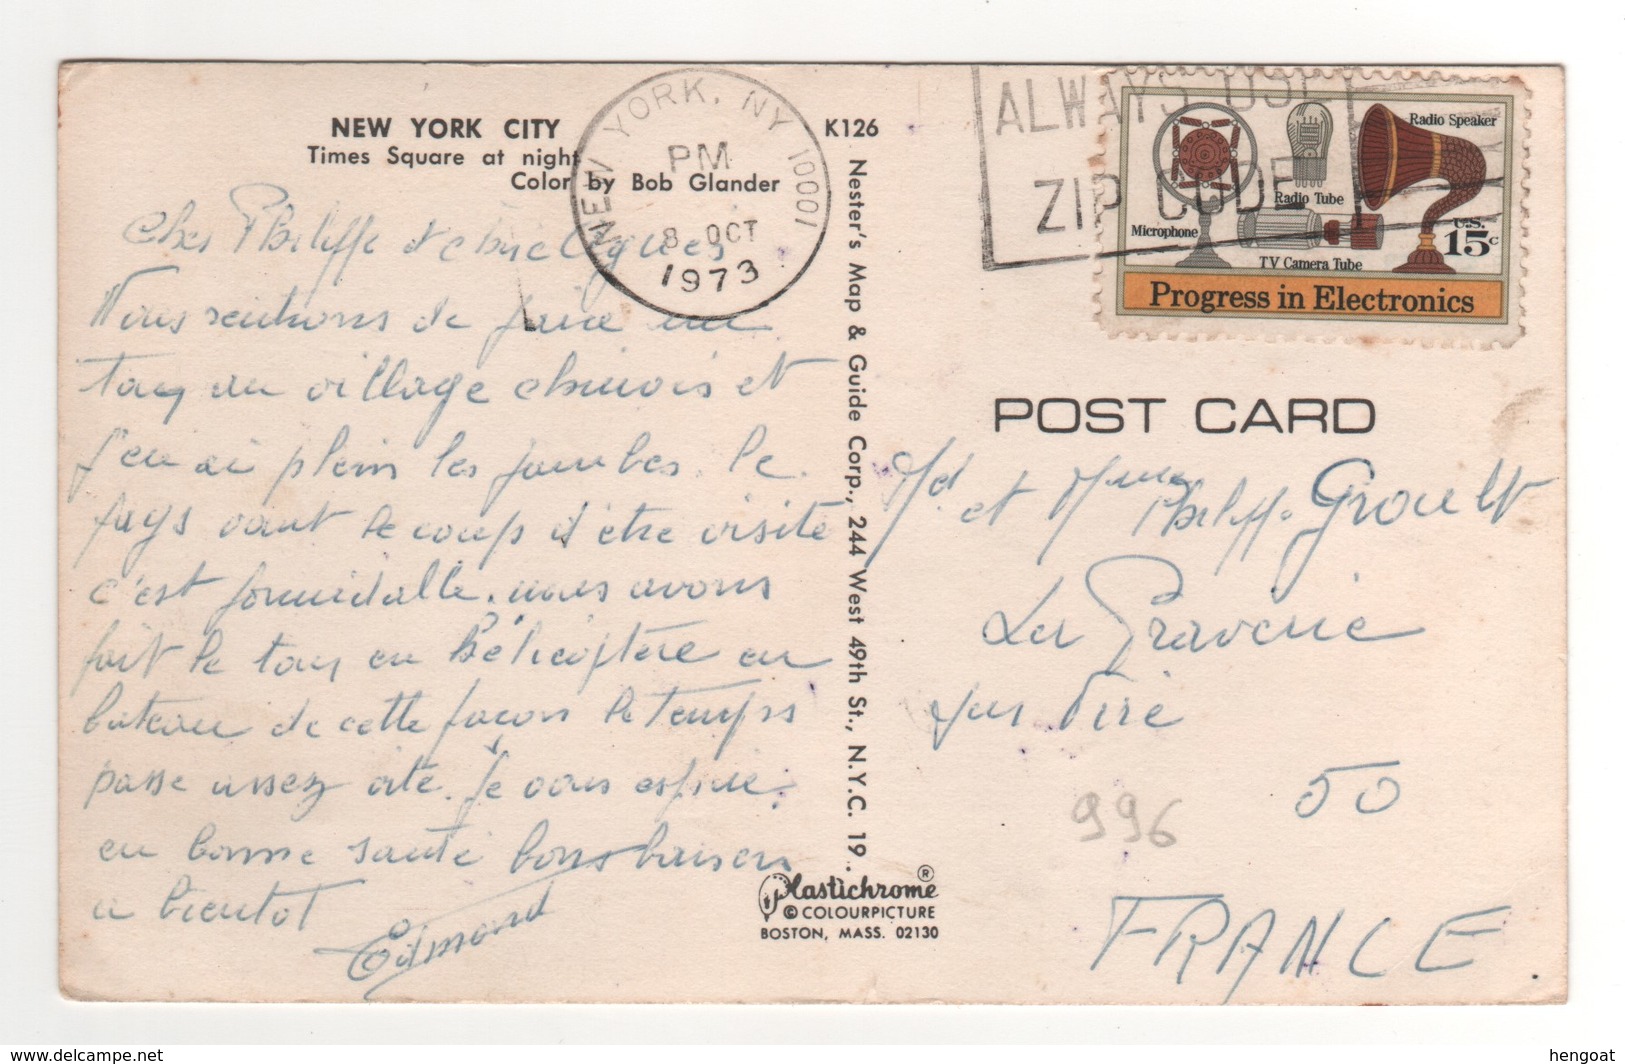 NEW YORK CITY
Times Square at night
Color by Bob Glander
K126
NEW YORK, NY 10001
PM
8 OCT
1973
ALWAYS USE
ZIP CODE
Radio Speaker
Radio Tube
Microphone
TV Camera Tube
U.S.
15c
Progress in Electronics
POST CARD
Nester's Map & Guide Corp., 244 West 49th St., N.Y.C. 19
Cher Philippe et
Nous rentrons de faire un
tour au village chinois et
j'en ai plein les jambes le
pays vaut le coup d'être visité
c'est formidable. nous avons
fait le tour en hélicoptère en
bateau de cette façon le temps
passe assez vite. Je vous espère
en bonne santé bons baisers
a bientot
Edmond
Mr et Mme Philippe Groult
La Graverie
par Vire
50
996
FRANCE
Plastichrome ®
© COLOURPICTURE
BOSTON, MASS. 02130
hengoat
www.delcampe.net